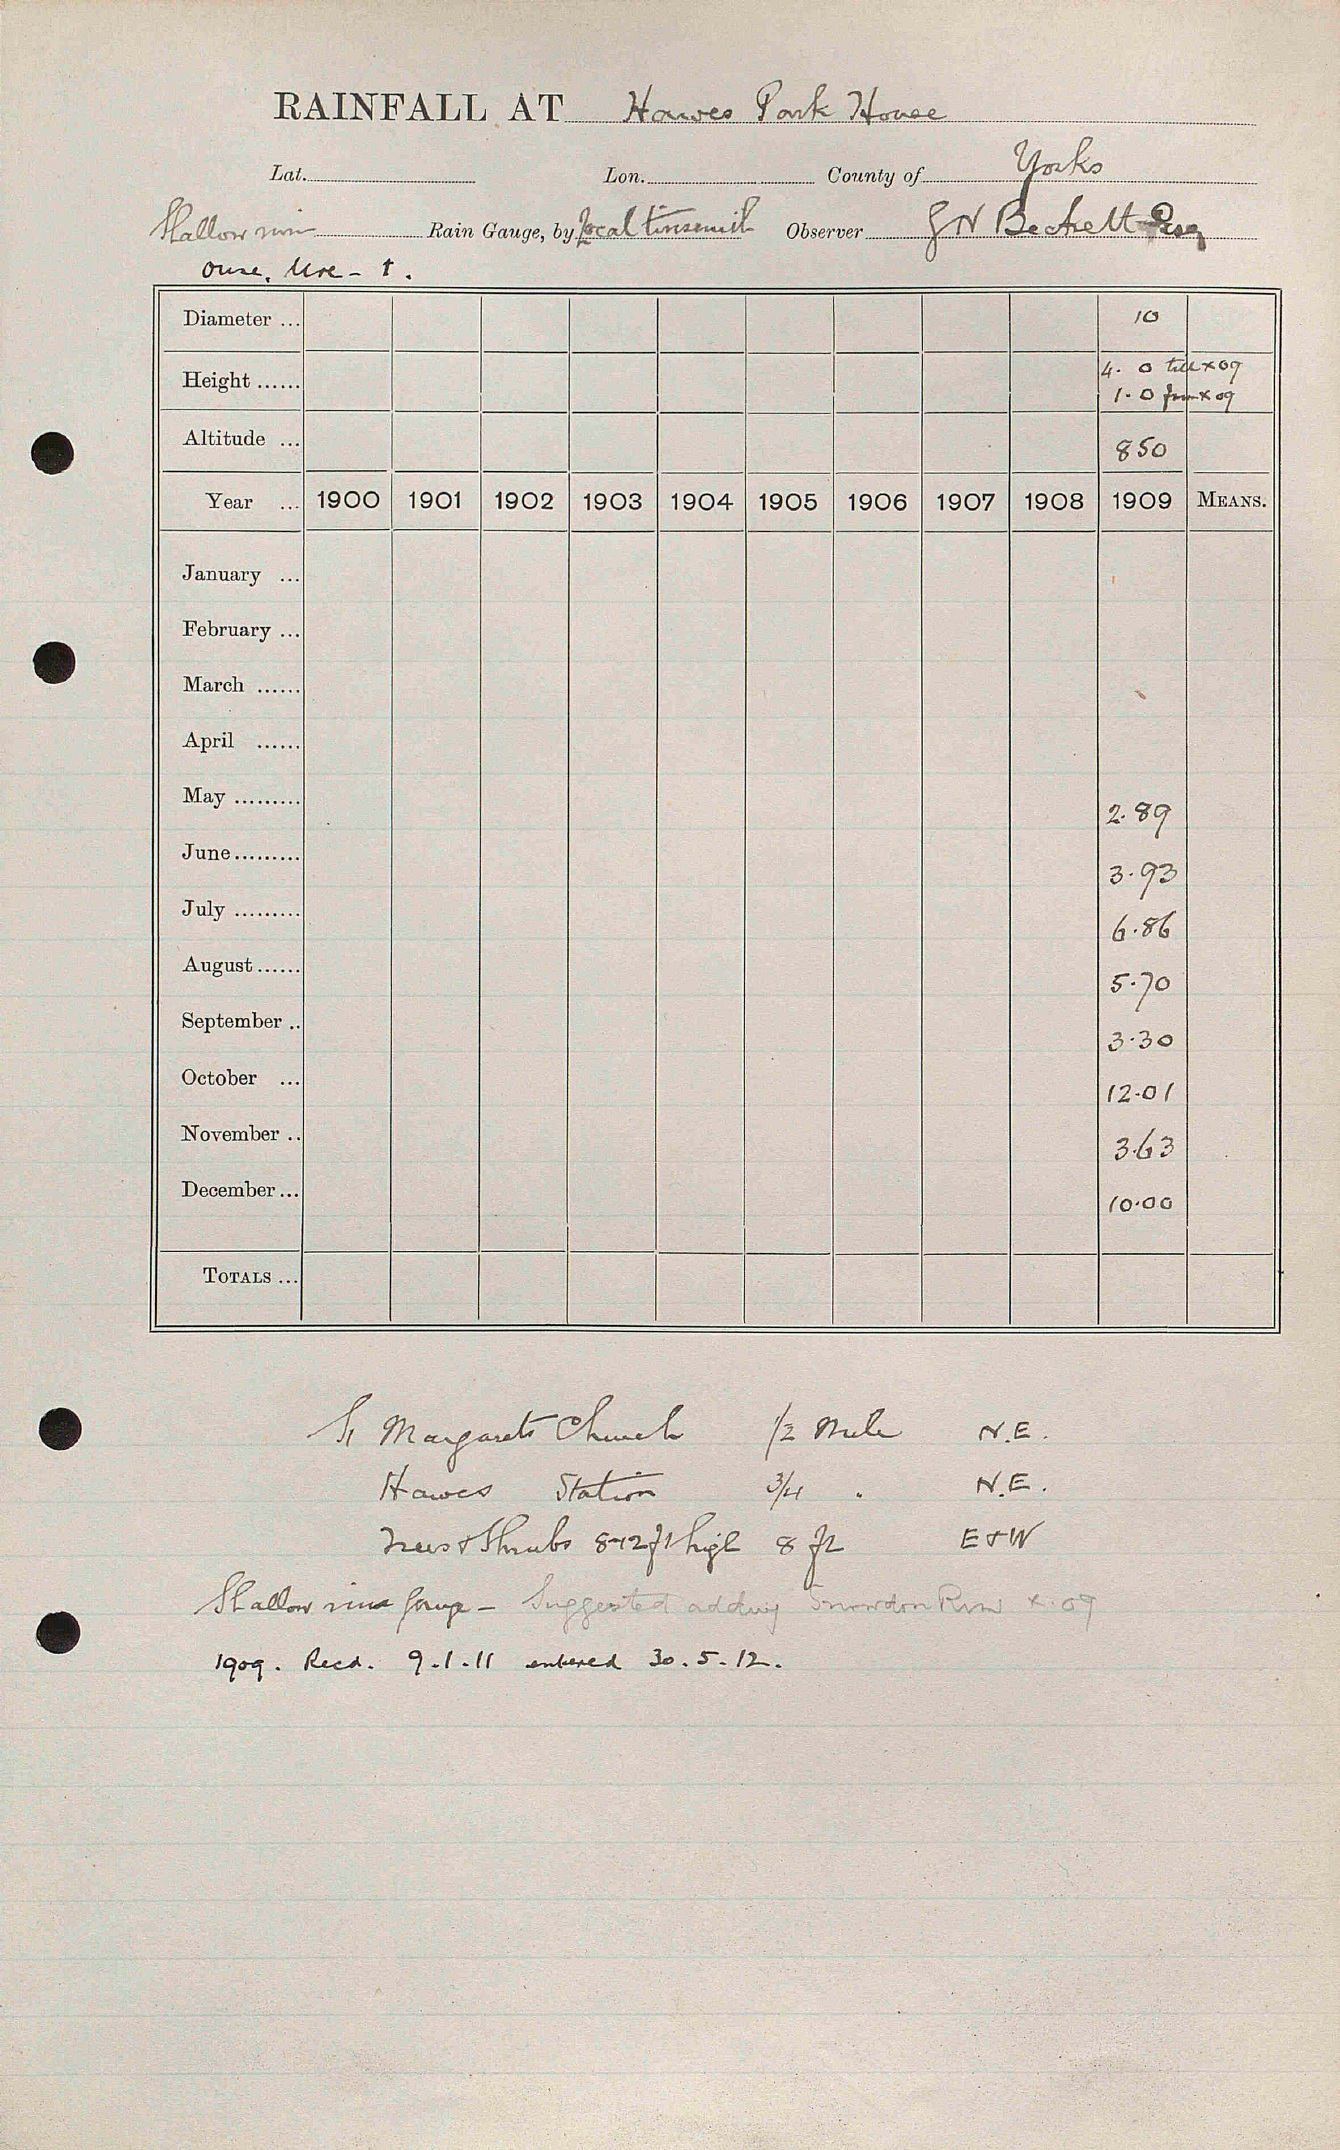 RAINFALL AT Hawes Park House
Lat. Lon. County of Yorks
Shallow rim Rain Gauge, by Local tinsmith Observer G N Beckett Esq
Ouse, Ure - t.
Diameter ... 10
Height ...... 4. 0 till x 09
1. 0 from x 09
Altitude ... 850
Year ... 1900 1901 1902 1903 1904 1905 1906 1907 1908 1909 MEANS.
January ...
February ...
March ......
April ......
May ......... 2.89
June......... 3.93
July ......... 6.86
August...... 5.70
September .. 3.30
October ... 12.01
November .. 3.63
December... 10.00
TOTALS ...
St Margarets Church 1/2 Mile N.E.
Hawes Station 3/4 " N.E.
Trees & Shrubs 8-12 ft high 8 ft E & W
Shallow rim gauge - Suggested adding Snowdon Rim x.09
1909. Recd. 9.1.11 entered 30.5.12.